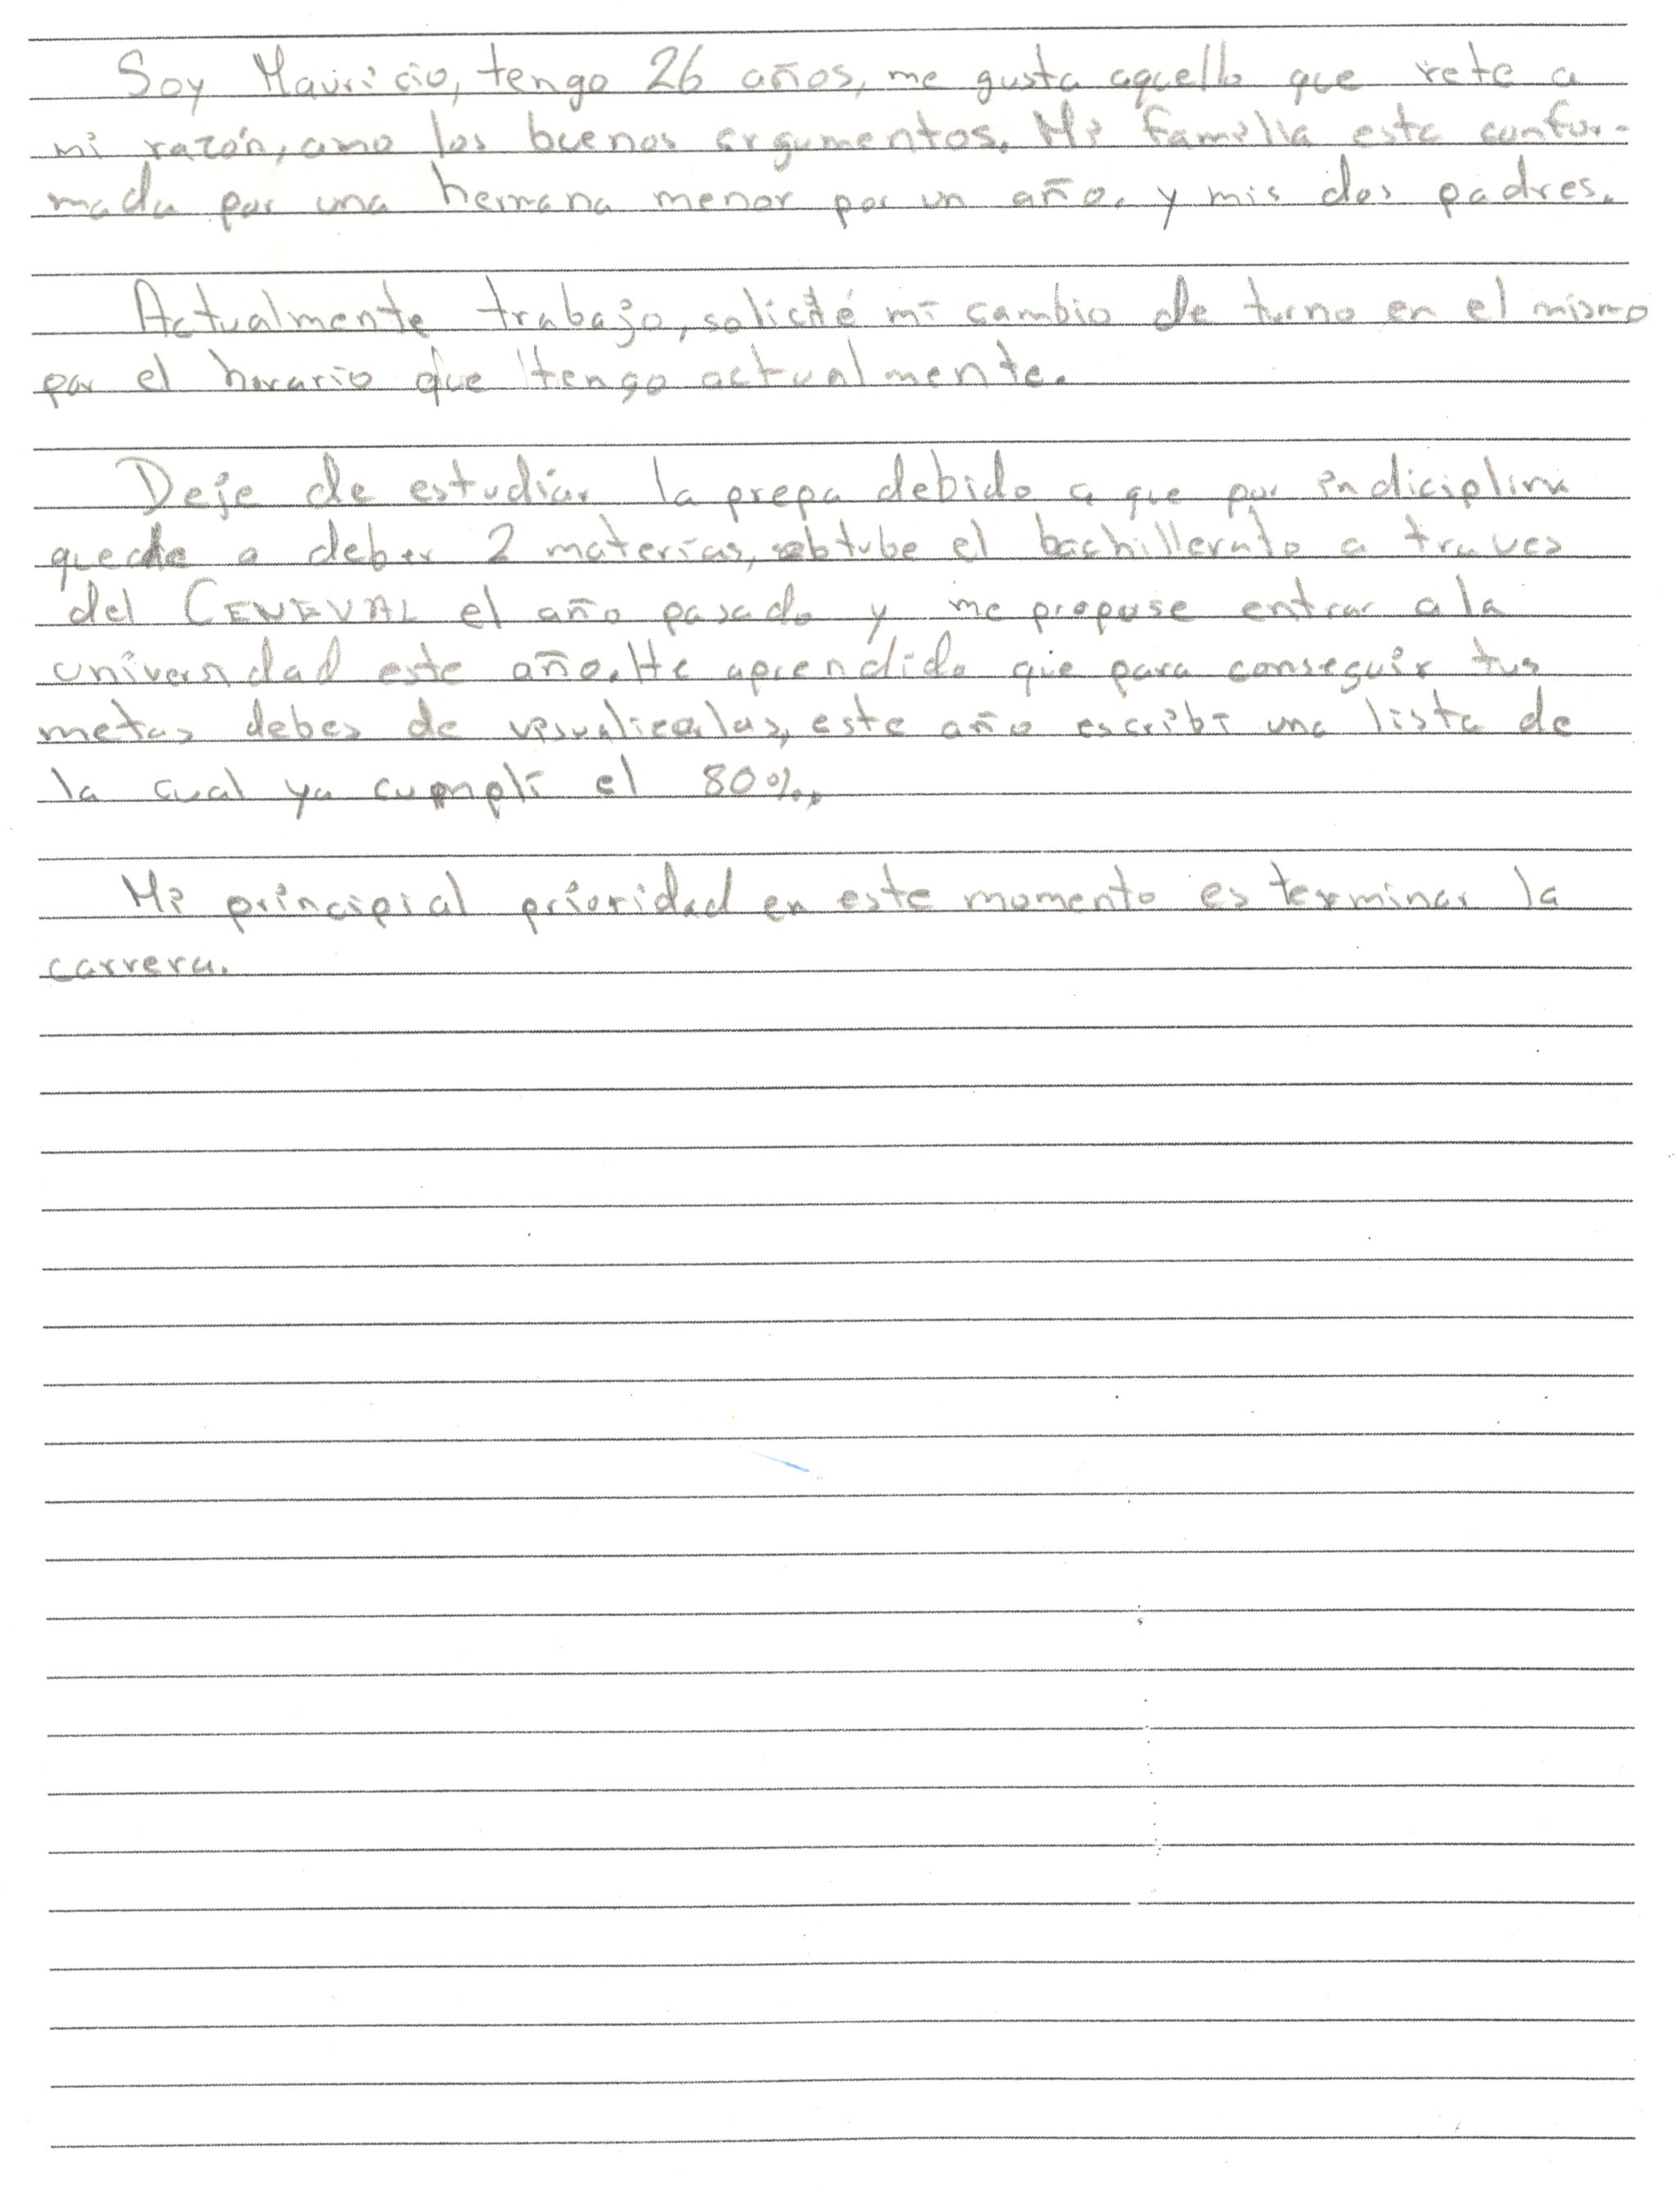 Soy Mauricio, tengo 26 años, me gusta aquello que rete a
mi razón, amo los buenos argumentos. Mi familia esta confor-
mada por una hermana menor por un año. y mis dos padres.
Actualmente trabajo, solicité mi cambio de turno en el mismo
por el horario que tengo actualmente.
Deje de estudiar la prepa debido a que por indiciplina
quede a deber 2 materias, obtube el bachillerato a traves
del CENEVAL el año pasado y me propuse entrar a la
universidad este año. He aprendido que para conseguir tus
metas debes de visualizarlas, este año escribí una lista de
la cual ya cumplí el 80%.
Mi principial prioridad en este momento es terminar la
carrera.